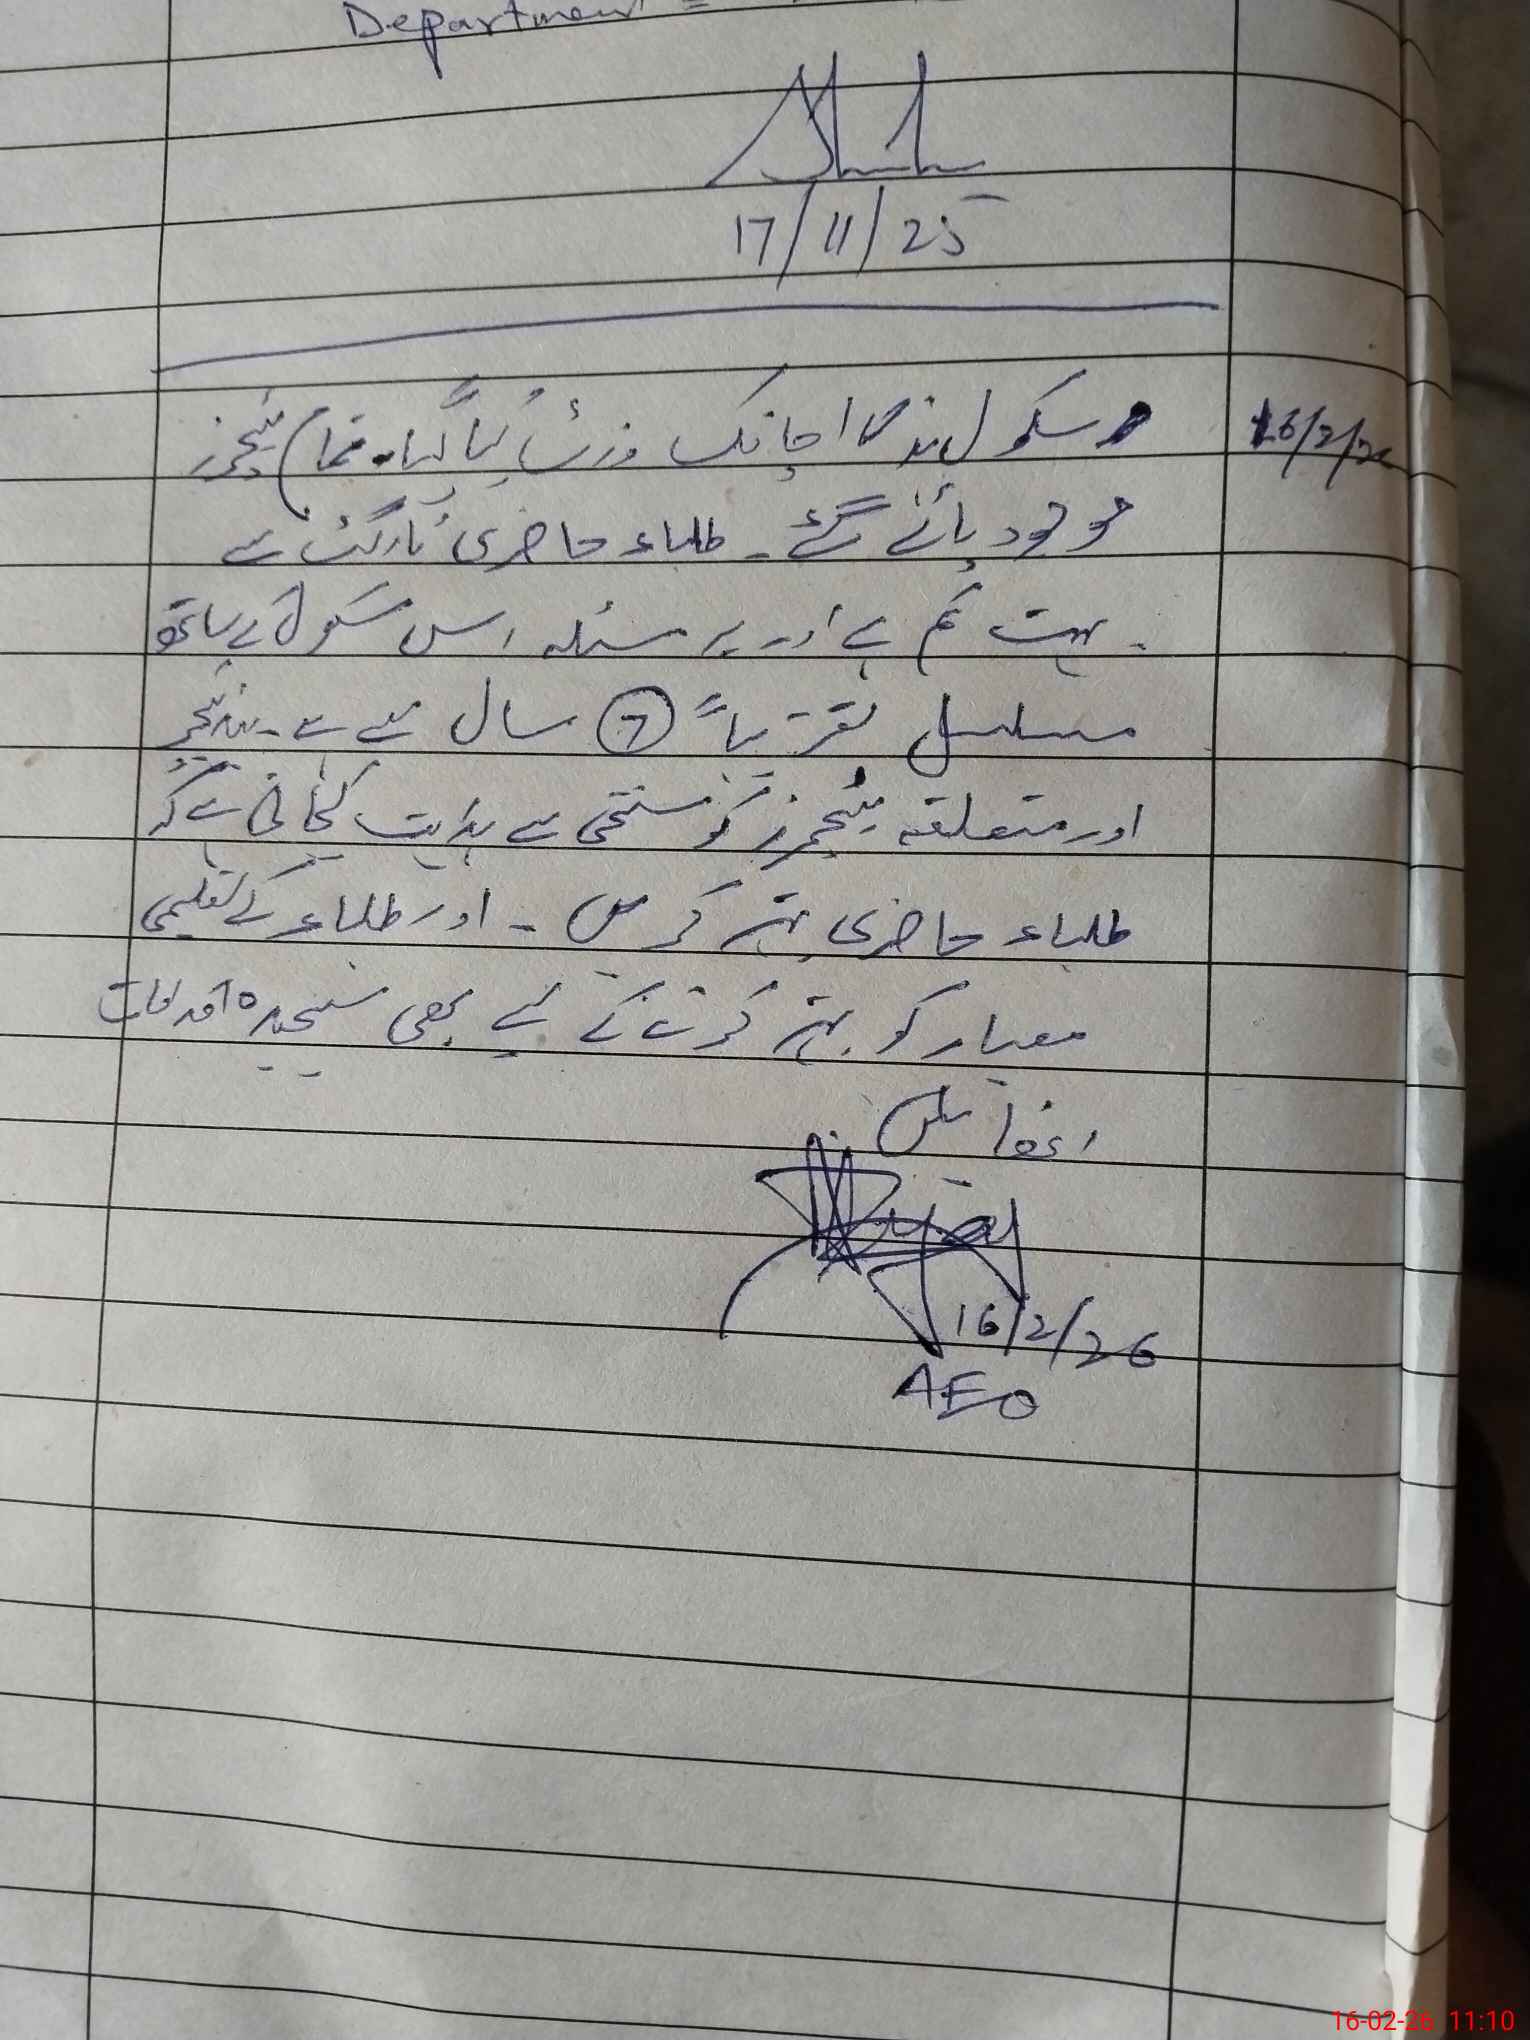 Department =
17/11/25
16/2/26
سکول ہذا کا اچانک وزٹ کیا گیا۔ تمام ٹیچرز
موجود پائے گئے۔ طلباء حاضری ٹارگٹ سے
بہت کم ہے اور یہ مسئلہ اس سکول کے ساتھ
مسلسل تقریباً 7 سال سے ہے۔ ہیڈ ٹیچر
اور متعلقہ ٹیچرز کو سختی سے ہدایت کی جاتی ہے کہ
طلباء حاضری بہتر کریں۔ اور طلباء کے تعلیمی
معیار کو بہتر کرنے کے لیے بھی سنجیدہ اقدامات
اٹھائیں
16/2/26
AEO
16-02-26 11:10